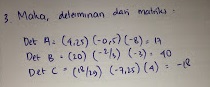 3. Maka, determinan dari matriks.
Det A = (4,25) (-0,5) (-8) = 17
Det B = (20) (-2/3) (-3) = 40
Det C = (18/29) (-7,25) (4) = -18